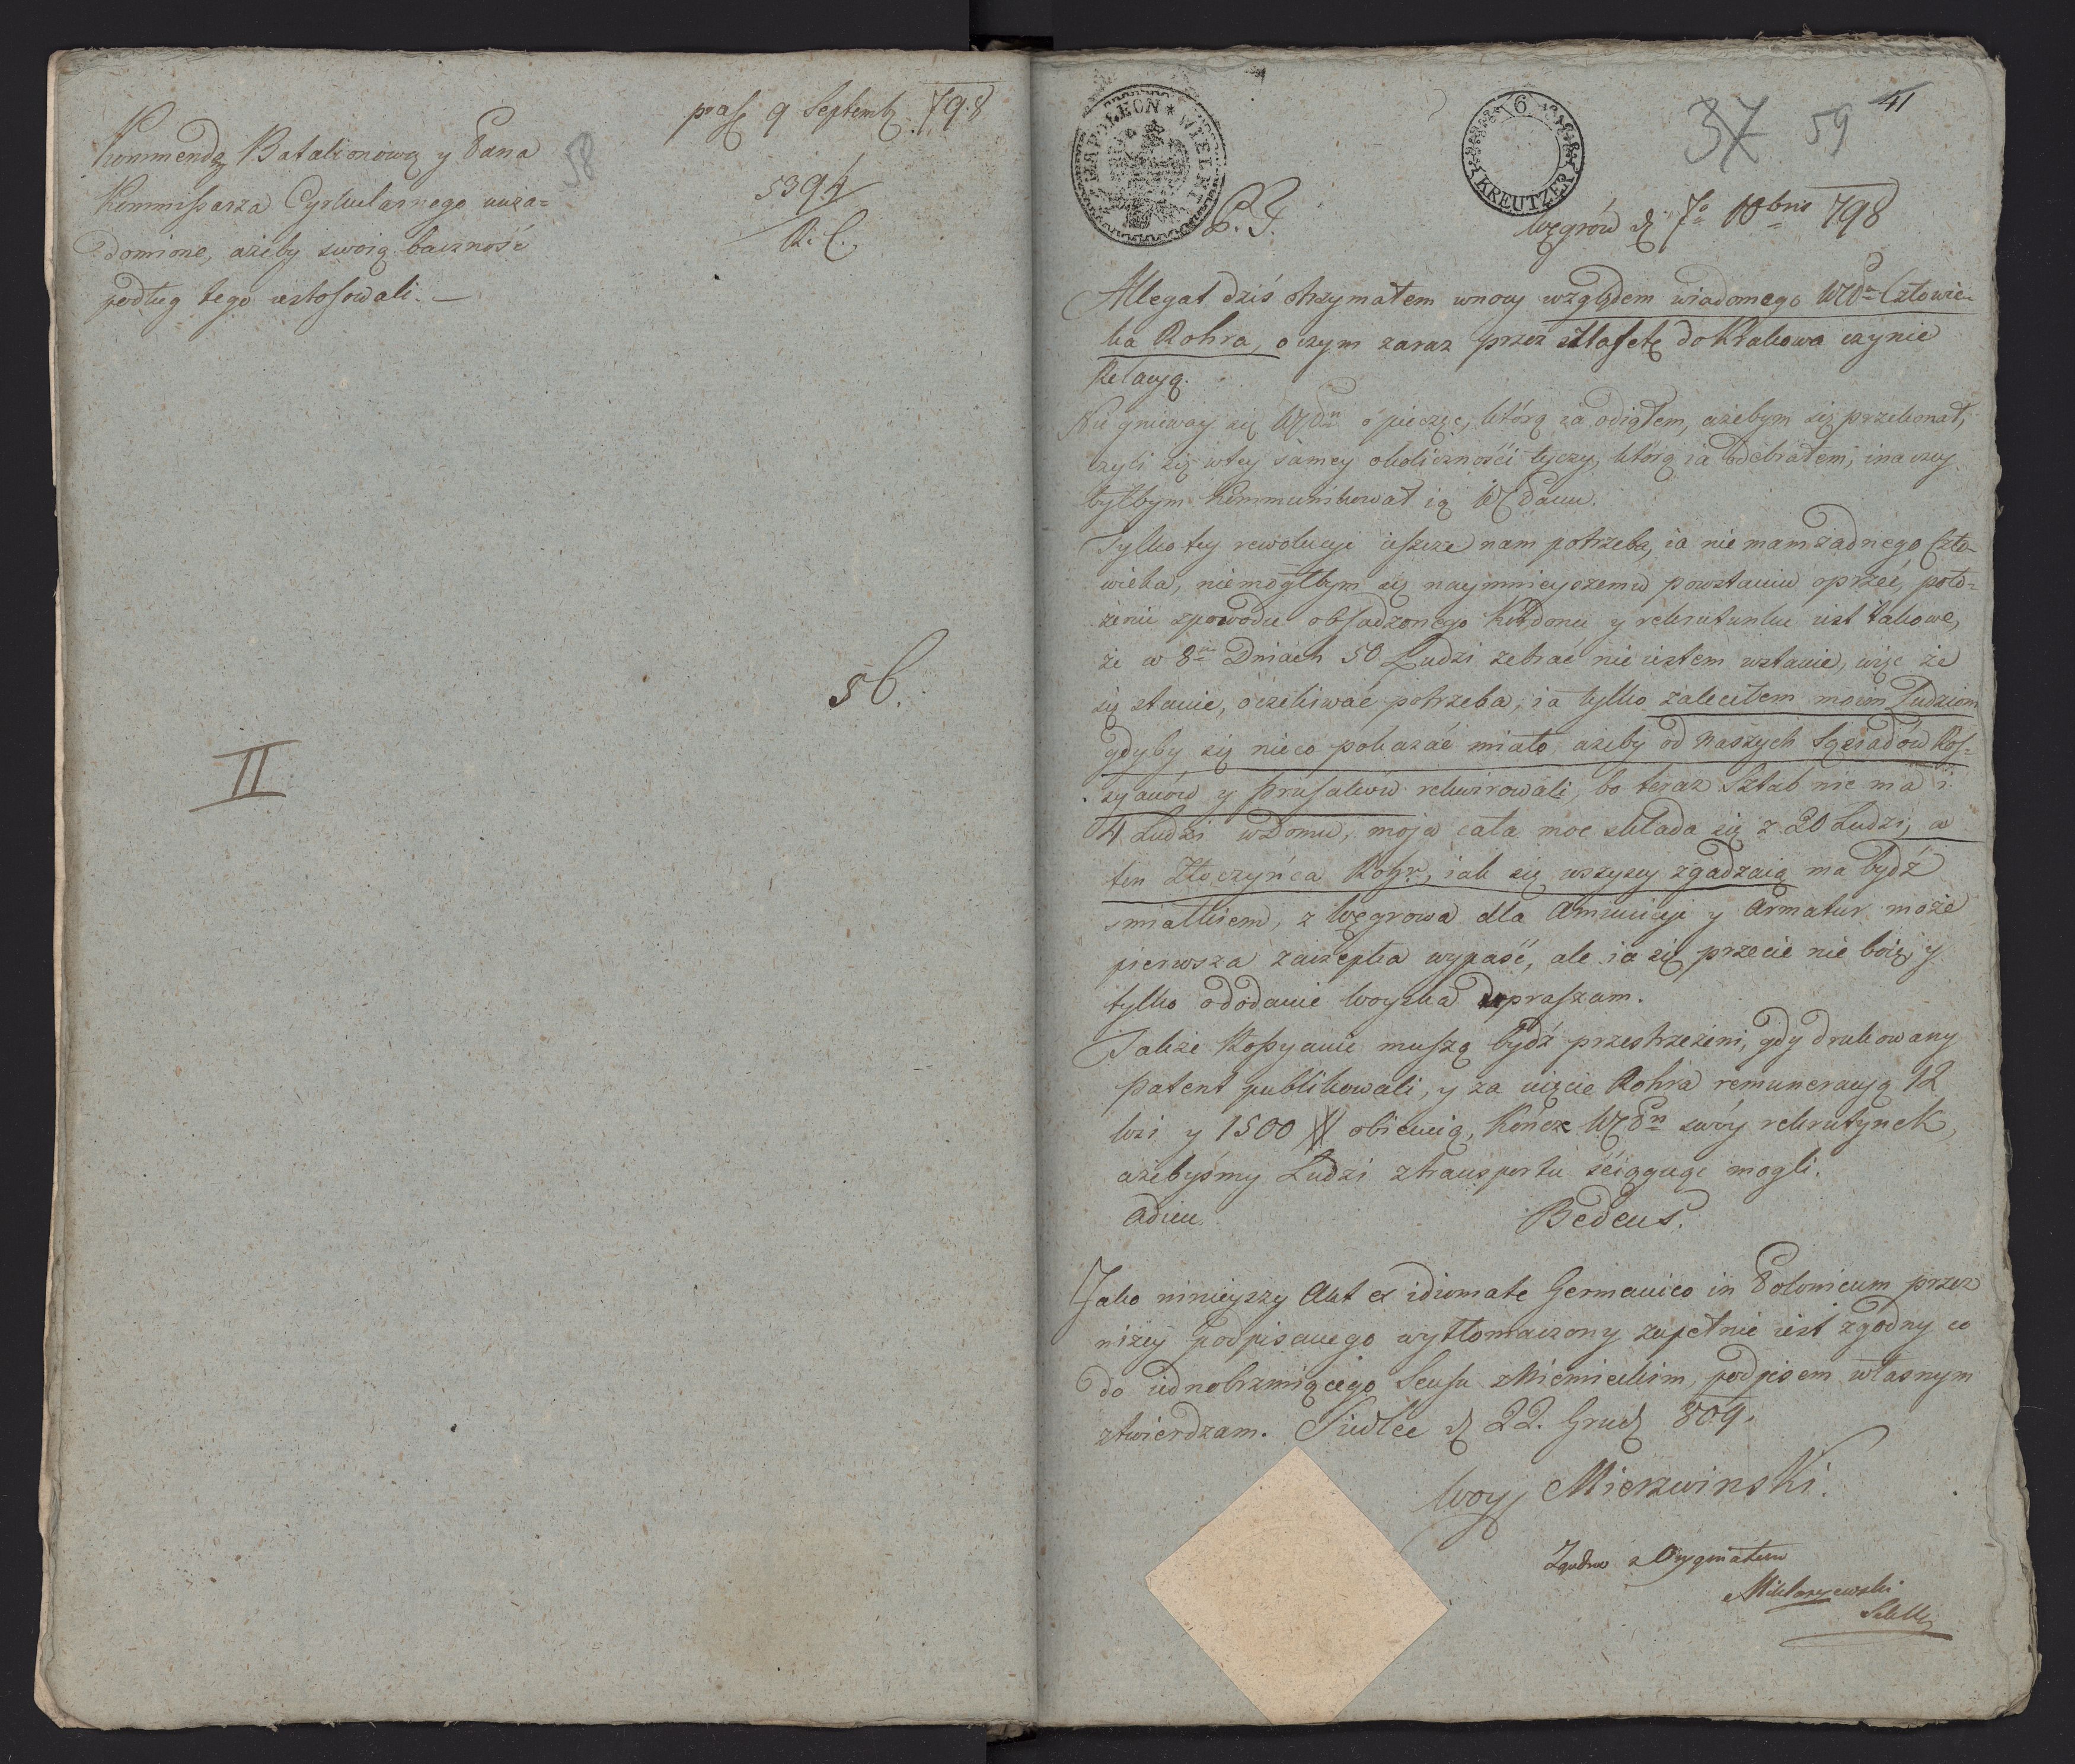 praes 9 Septemb 798
Kommendę Batalionową y Pana
58
Kommissarza Cyrkularnego uwia=
5394
domione, ażeby swoią baczność
R. C.
podług tego ustosowali. —
5b.
II
NAPOLEON * WIELKI
6 KREUTZER
37 59 41
P. P.
Węgrów d 7o 10bris 798
Allegat dziś otrzymałem wnocy względem wiadomego WPn Człowie-
ka Rohra, oczym zaraz przez sztafetę do Krakowa czynie
Relacyą.
Nie gnieway się WPn o pieczęć, którą ia odiąłem, ażebym się przekonał,
czyli się wtey samey okoliczności tyczy, którą ia odebrałem, inaczey
byłbym Kommunikował ią WPanu.
Tylko tey rewolucyi ieszcze nam potrzeba, ia nie mam żadnego Czło-
wieka, niemógłbym się naymnieyszemu powstaniu oprzeć, poło-
żenie zpowodu obsadzonego Kordonu y rekrutunku iest takowe,
że w 8u Dniach 50 Ludzi zebrać nie iestem wstanie, więc że
się stanie, oczekiwać potrzeba, ia tylko zaleciłem moim Ludziom
gdyby się nieco pokazać miało, ażeby od naszych Sąsiadów Ros-
syanów y Prusaków rekwirowali, bo teraz Sztab nie ma i
4 Ludzi wDomu, moja cała moc składa się z 20 Ludzi, a
ten Złoczyńca Rohr, iak się wszyscy zgadzaią ma bydź
smiałkiem, z Węgrowa dla Amunicyi y Armatur może
pierwsza zaczepka wypaść, ale ia się przecie nie boię y
tylko ododanie Woyska dopraszam.
Także Rossyanie muszą bydź przestrzeżeni, gdy drukowany
patent publikowali, y za uięcie Rohra remuneracyą 12
Wsi y 1500 # obiecuią, Kończ WPn swóy rekrutynek,
ażebyśmy Ludzi ztransportu ściągnąć mogli.
Adieu. Bedeus.
Jako ninieyszy Akt ex idiomate Germanico in Polonicum przez
niżey podpisanego wytłomaczony zupełnie iest zgodny co
do iednobrzmiącego Sensu zNiemieckim, podpisem własnym
ztwierdzam. Siedlce d 22. Grud 809.
Woy Mierzwinski.
Zgodno z Oryginałem